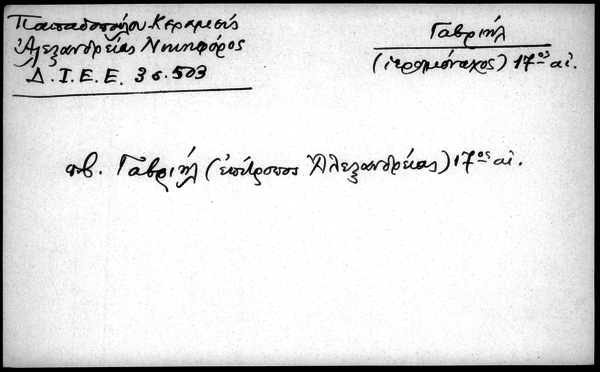 Παπαδοπούλου-Κεραμεύς
Ἀλεξανδρείας Νικηφόρος
Δ.Ι.Ε.Ε. 3σ.503
Γαβριήλ
(ἱερομόναχος) 17ος αἰ.
πβ. Γαβριήλ (ἐπίτροπος Ἀλεξανδρείας) 17ος αἰ.